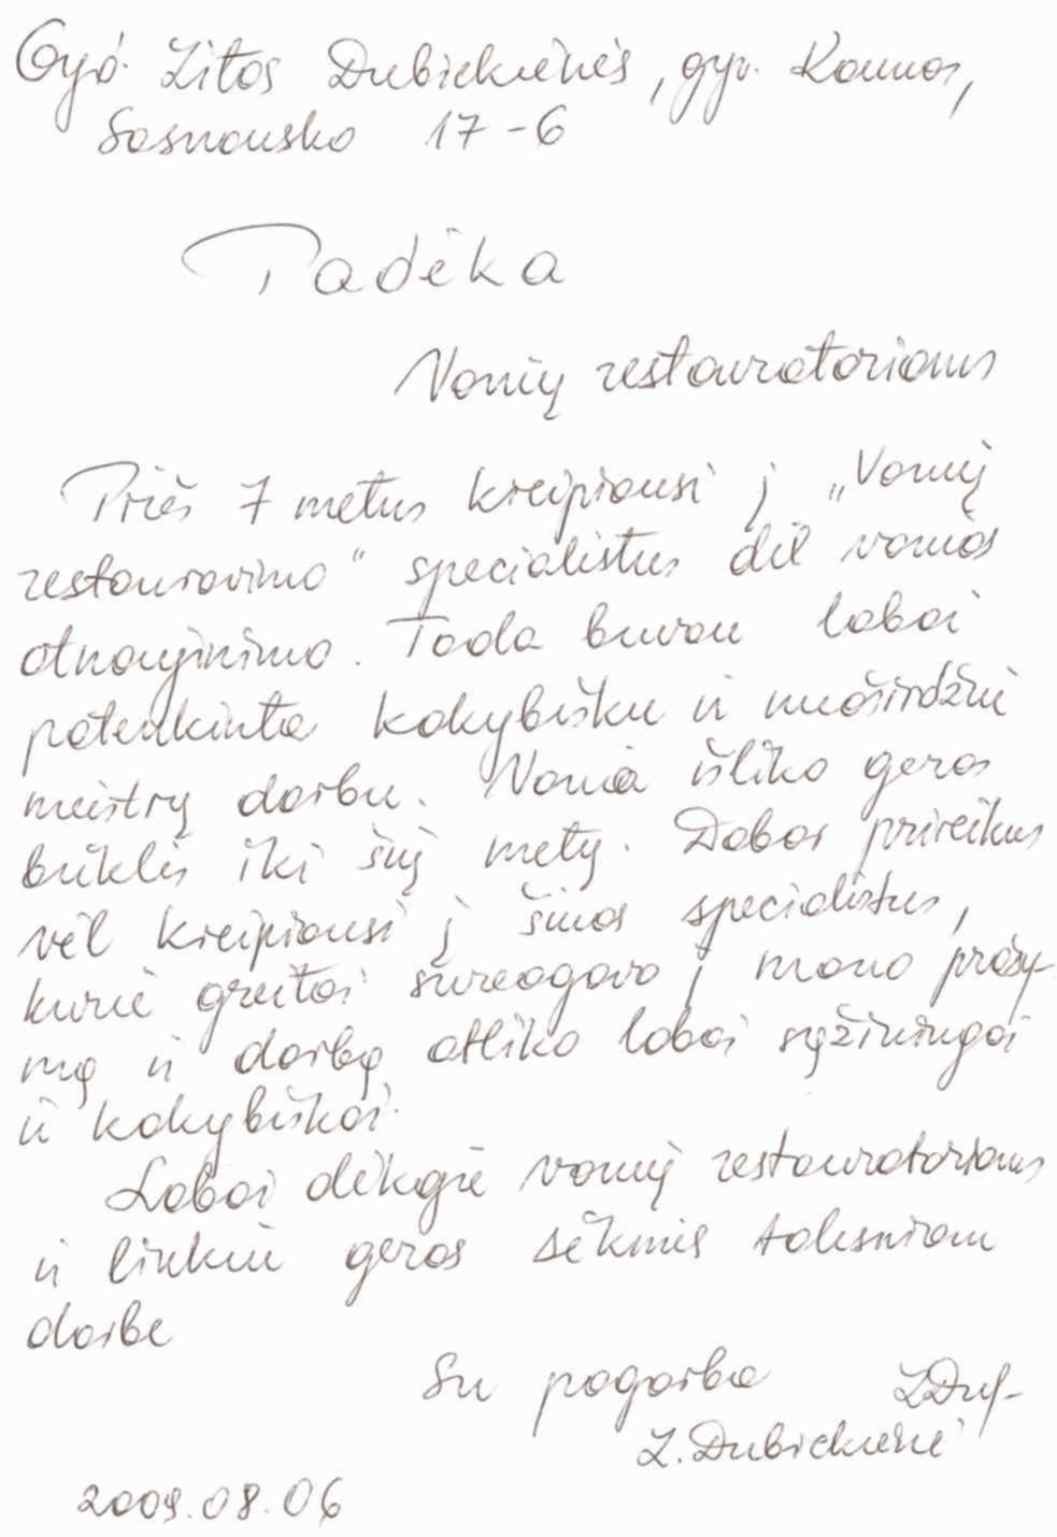 Gyd. Zitos Dubickienės, gyv. Kaunas,
Sosnausko 17-6
Padėka
Vonių restauratoriams
Prieš 7 metus kreipiausi į „Vonių
restauravimo“ specialistus dėl vonios
atnaujinimo. Tada buvau labai
patenkinta kokybišku ir nuoširdžiu
meistrų darbu. Vonia išliko geros
būklės iki šių metų. Dabar prireikus
vėl kreipiausi į šiuos specialistus,
kurie greitai sureagavo į mano prašy-
mą ir darbą atliko labai sąžiningai
ir kokybiškai.
Labai dėkoju vonių restauratoriams
ir linkiu geros sėkmės tolesniam
darbe
Su pagarba
Z. Dubickienė
2009.08.06